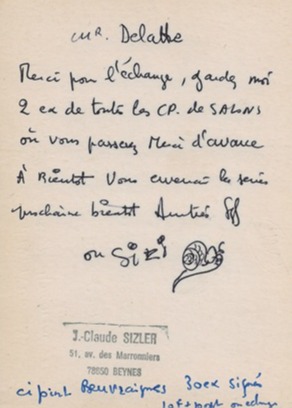 Mr. Delattre
Merci pour l'échange, gardez moi
2 ex de toute les CP. de SALONS
où vous passerez Merci d'avance
À Bientôt Vous enverrai les series
prochaine bientôt Amitiés
ou SiZi
J.-Claude SIZLER
51, av. des Marronniers
78650 BEYNES
ci joint Beuvraignes 30 ex signés
port en échange